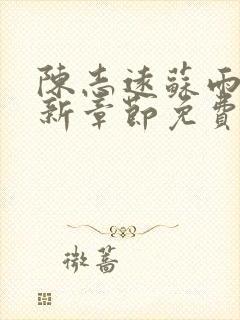 陳志遠蘇雨
新章節免費
微薔